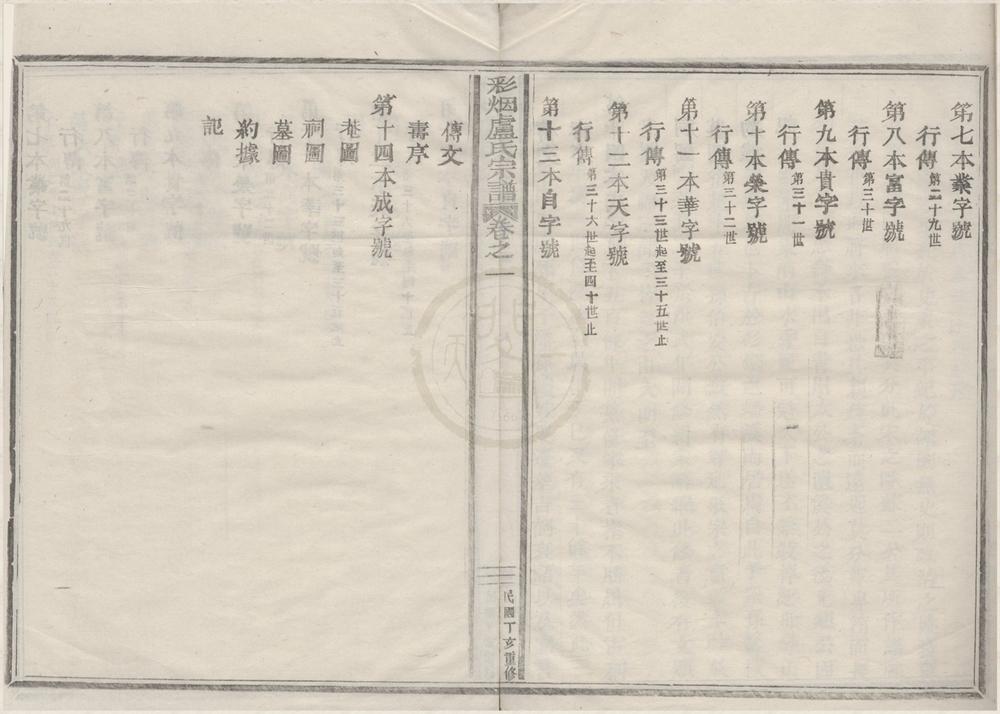 第七本業字號
行傳第二十九世
第八本富字號
行傳第三十世
第九本貴字號
行傳第三十一世
第十本榮字號
行傳第三十二世
第十一本華字號
行傳第三十三世起至三十五世止
第十二本天字號
行傳第三十六世起至四十世止
第十三本自字號
彩烟盧氏宗譜
卷之一
民國丁亥重修
傳文
壽序
第十四本成字號
菴圖
祠圖
墓圖
約據
記